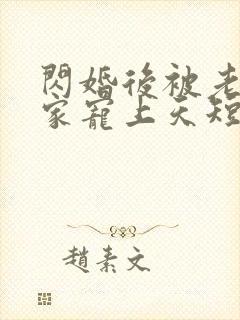 閃婚後被老
家寵上天短
趙素文